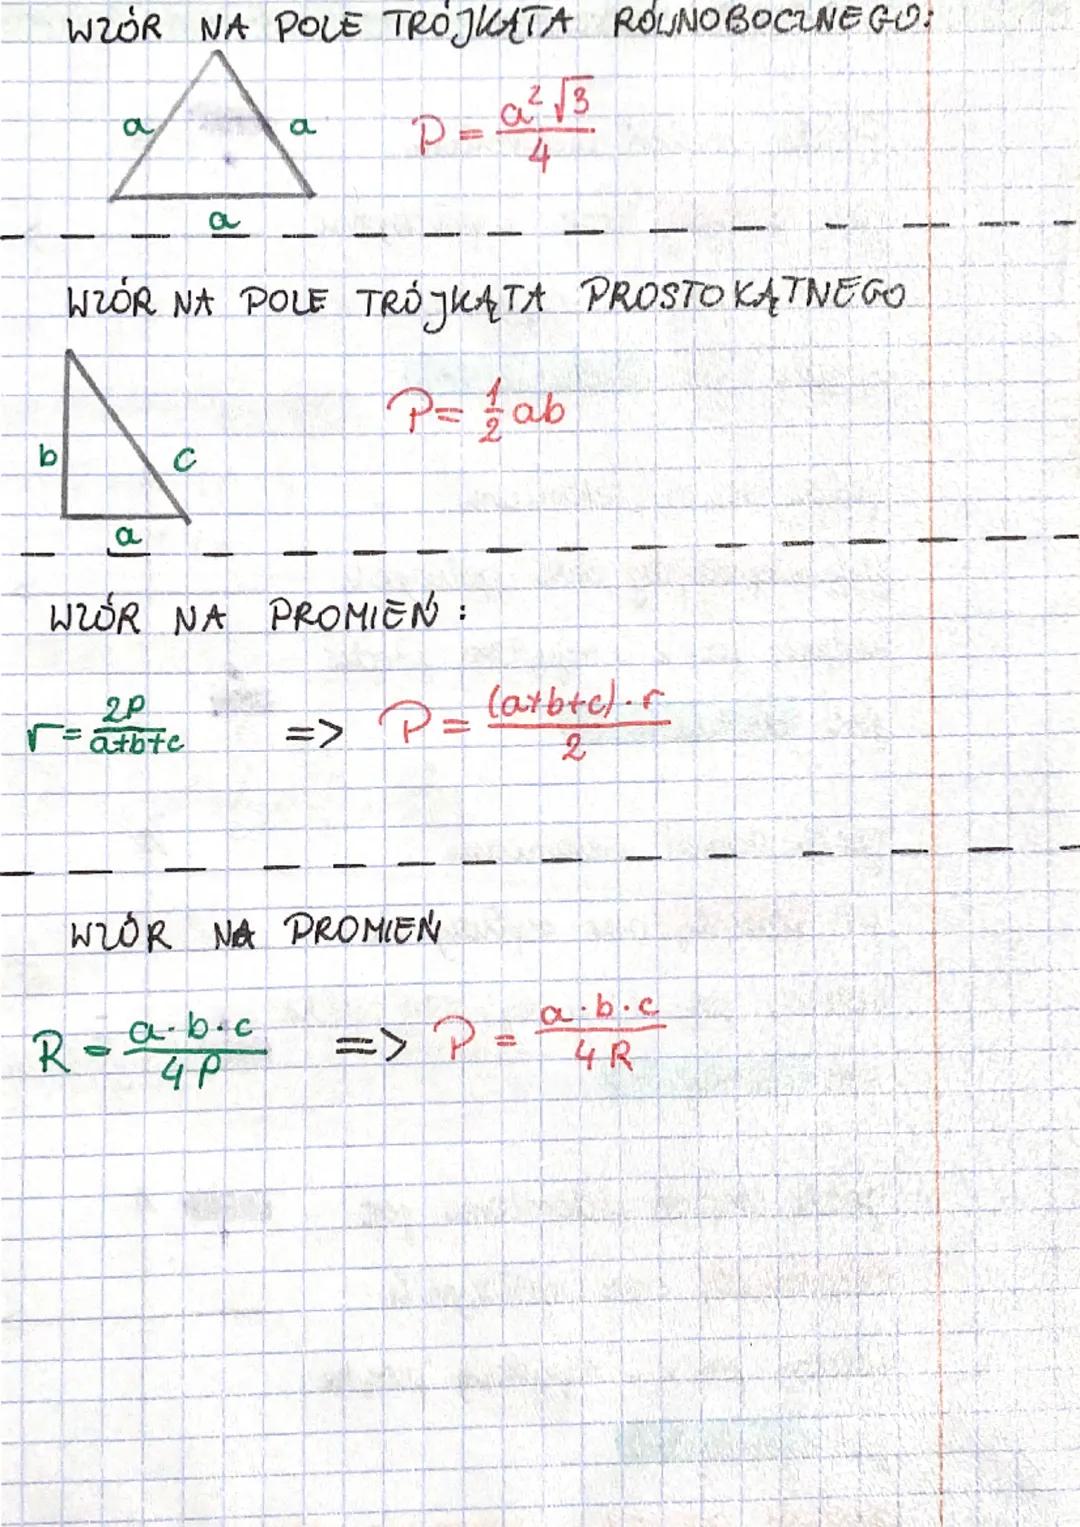 WZÓR NA POLE TRÓJKĄTA RÓWNOBOCZNEGO:
a a P = a²√3/4
a
WZÓR NA POLE TRÓJKĄTA PROSTOKĄTNEGO
P = 1/2 ab
b c
a
WZÓR NA PROMIEŃ :
r = 2P/a+b+c => P = (a+b+c)·r/2
WZÓR NA PROMIEŃ
R = a·b·c/4P => P = a·b·c/4R